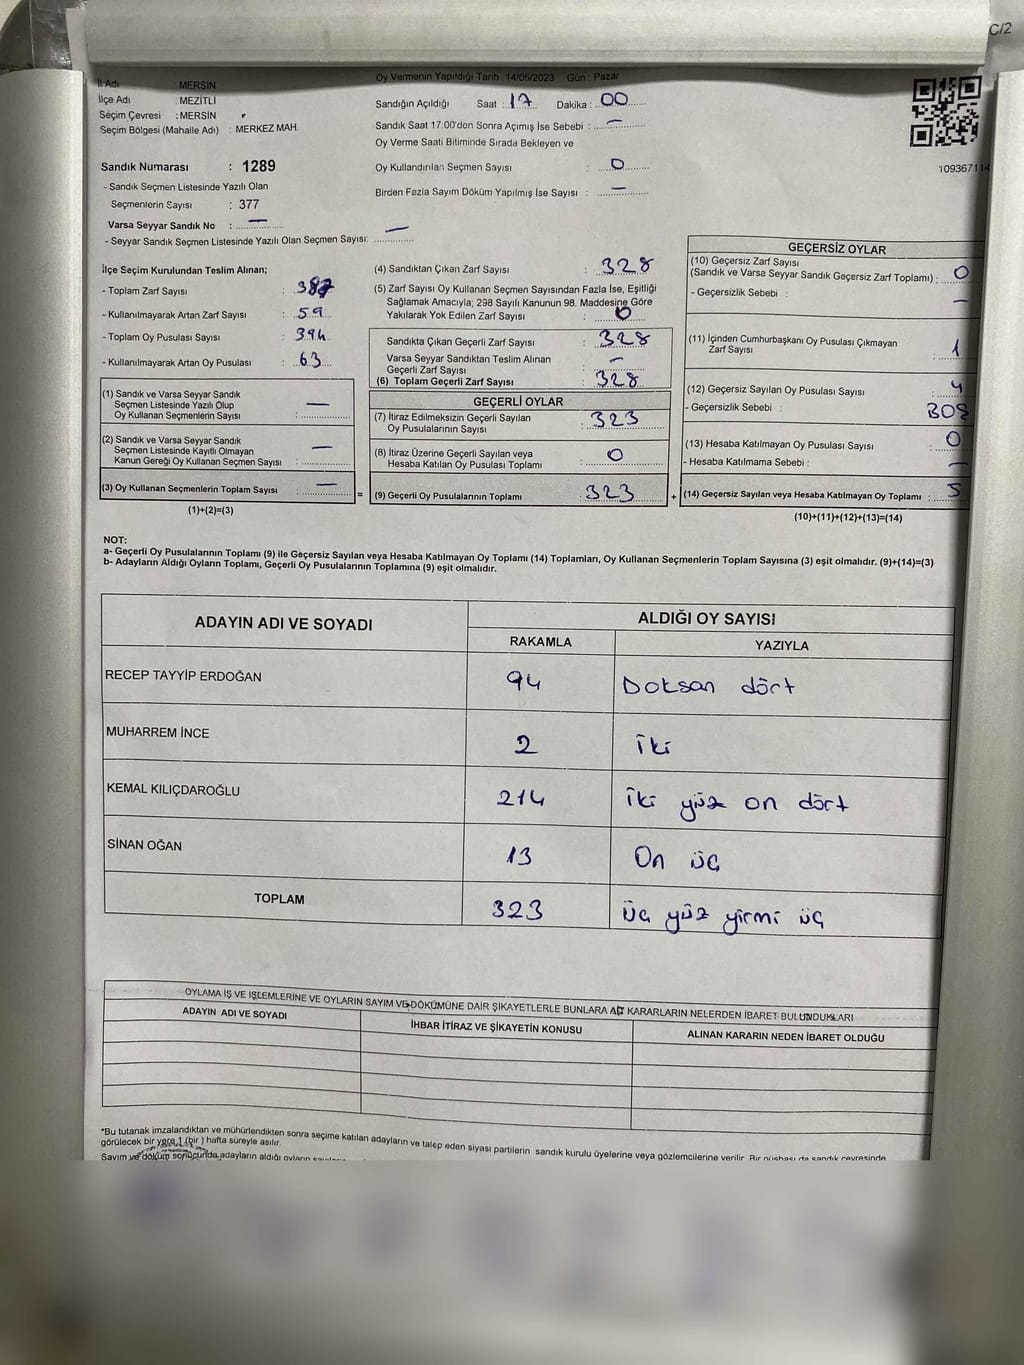 C/2
İl Adı : MERSİN
İlçe Adı : MEZİTLİ
Seçim Çevresi : MERSİN
Seçim Bölgesi (Mahalle Adı) : MERKEZ MAH.
Sandık Numarası : 1289
- Sandık Seçmen Listesinde Yazılı Olan
Seçmenlerin Sayısı : 377
Varsa Seyyar Sandık No : —
- Seyyar Sandık Seçmen Listesinde Yazılı Olan Seçmen Sayısı: —
Oy Vermenin Yapıldığı Tarih : 14/05/2023 Gün : Pazar
Sandığın Açıldığı Saat : 17 Dakika : 00
Sandık Saat 17:00'den Sonra Açımış İse Sebebi : —
Oy Verme Saati Bitiminde Sırada Bekleyen ve
Oy Kullandırılan Seçmen Sayısı : 0
Birden Fezla Sayım Döküm Yapılmış İse Sayısı : —
109367114
İlçe Seçim Kurulundan Teslim Alınan;
- Toplam Zarf Sayısı : 387
- Kullanılmayarak Artan Zarf Sayısı : 59
- Toplam Oy Pusulası Sayısı : 394
- Kullanılmayarak Artan Oy Pusulası : 63
(1) Sandık ve Varsa Seyyar Sandık
Seçmen Listesinde Yazılı Olup
Oy Kullanan Seçmenlerin Sayısı : —
(2) Sandık ve Varsa Seyyar Sandık
Seçmen Listesinde Kayıtlı Olmayan
Kanun Gereği Oy Kullanan Seçmen Sayısı : —
(3) Oy Kullanan Seçmenlerin Toplam Sayısı : — =
(1)+(2)=(3)
(4) Sandıktan Çıkan Zarf Sayısı : 328
(5) Zarf Sayısı Oy Kullanan Seçmen Sayısından Fazla İse, Eşitliği
Sağlamak Amacıyla; 298 Sayılı Kanunun 98. Maddesine Göre
Yakılarak Yok Edilen Zarf Sayısı : 0
Sandıkta Çıkan Geçerli Zarf Sayısı : 328
Varsa Seyyar Sandıktan Teslim Alınan
Geçerli Zarf Sayısı : —
(6) Toplam Geçerli Zarf Sayısı : 328
GEÇERLİ OYLAR
(7) İtiraz Edilmeksizin Geçerli Sayılan
Oy Pusulalarının Sayısı : 323
(8) İtiraz Üzerine Geçerli Sayılan veya
Hesaba Katılan Oy Pusulası Toplamı : 0
(9) Geçerli Oy Pusulalarının Toplamı : 323 +
GEÇERSİZ OYLAR
(10) Geçersiz Zarf Sayısı
(Sandık ve Varsa Seyyar Sandık Geçersiz Zarf Toplamı) : 0
- Geçersizlik Sebebi : —
(11) İçinden Cumhurbaşkanı Oy Pusulası Çıkmayan
Zarf Sayısı : 1
(12) Geçersiz Sayılan Oy Pusulası Sayısı : 4
- Geçersizlik Sebebi : BOŞ
(13) Hesaba Katılmayan Oy Pusulası Sayısı : 0
- Hesaba Katılmama Sebebi : —
(14) Geçersiz Sayılan veya Hesaba Katılmayan Oy Toplamı : 5
(10)+(11)+(12)+(13)=(14)
NOT:
a- Geçerli Oy Pusulalarının Toplamı (9) ile Geçersiz Sayılan veya Hesaba Katılmayan Oy Toplamı (14) Toplamları, Oy Kullanan Seçmenlerin Toplam Sayısına (3) eşit olmalıdır. (9)+(14)=(3)
b- Adayların Aldığı Oyların Toplamı, Geçerli Oy Pusulalarının Toplamına (9) eşit olmalıdır.
ADAYIN ADI VE SOYADI ALDIĞI OY SAYISI
RAKAMLA YAZIYLA
RECEP TAYYİP ERDOĞAN 94 Doksan dört
MUHARREM İNCE 2 İki
KEMAL KILIÇDAROĞLU 214 İki yüz on dört
SİNAN OĞAN 13 On üç
TOPLAM 323 üç yüz yirmi üç
OYLAMA İŞ VE İŞLEMLERİNE VE OYLARIN SAYIM VE DÖKÜMÜNE DAİR ŞİKAYETLERLE BUNLARA AİT KARARLARIN NELERDEN İBARET BULUNDUKLARI
ADAYIN ADI VE SOYADI İHBAR İTİRAZ VE ŞİKAYETİN KONUSU ALINAN KARARIN NEDEN İBARET OLDUĞU
*Bu tutanak imzalandıktan ve mühürlendikten sonra seçime katılan adayların ve talep eden siyasi partilerin sandık kurulu üyelerine veya gözlemcilerine verilir. Bir nüshası da sandık çevresinde
görülecek bir yere 1 (bir ) hafta süreyle asılır.
Sayım ve döküm sonucunda adayların aldığı oyların